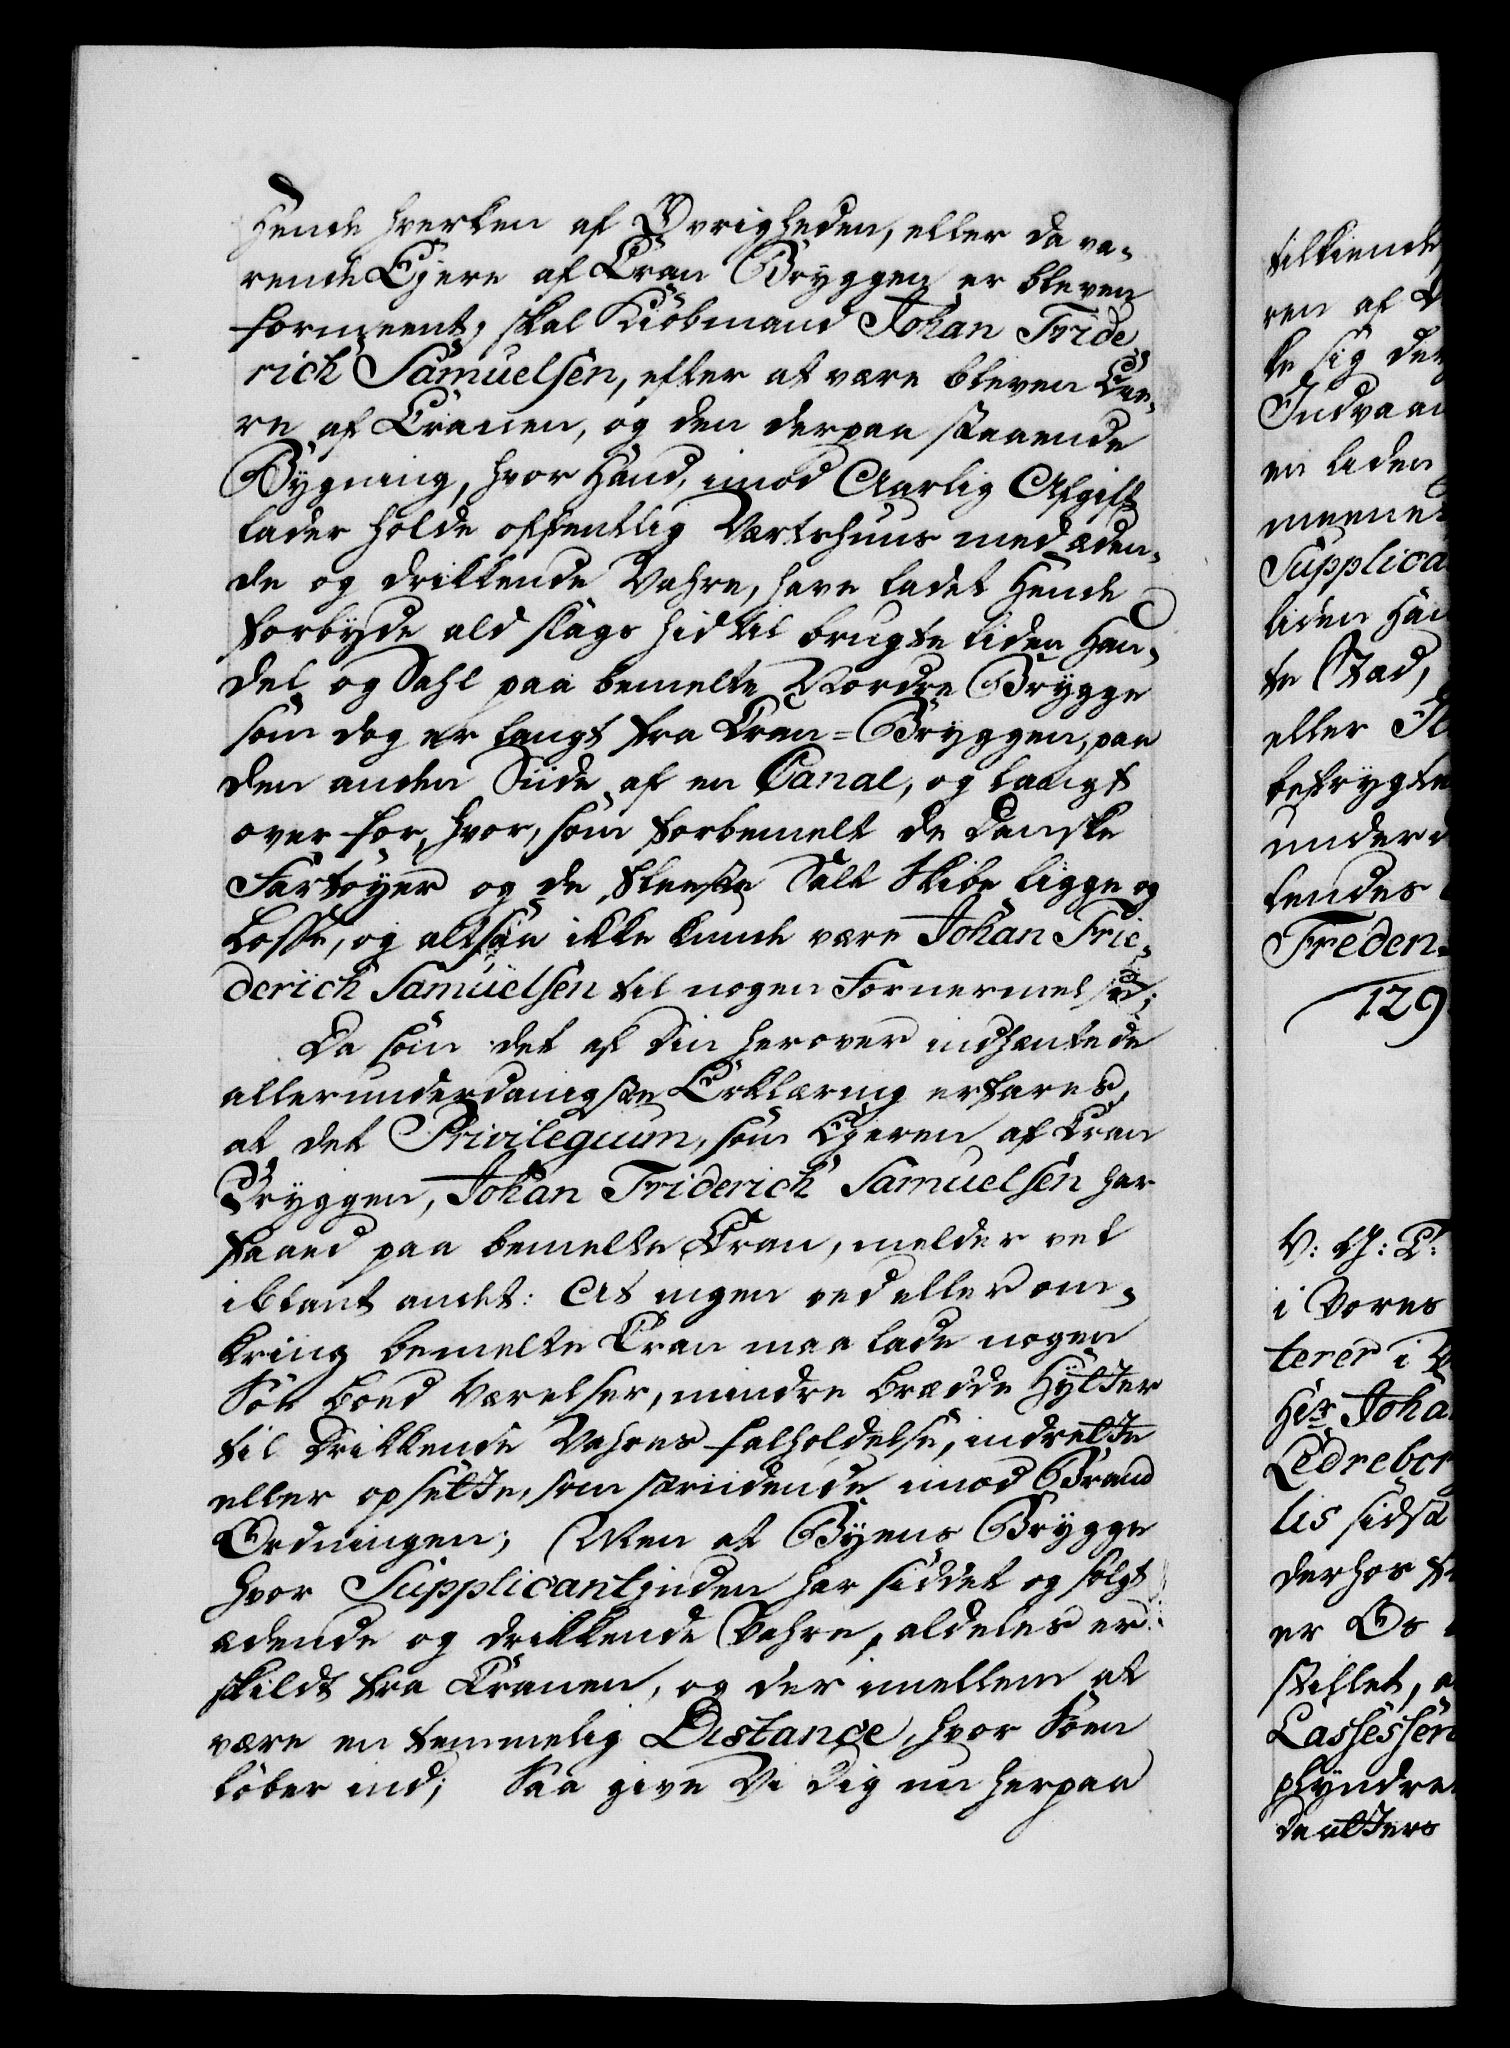 Hende hverken af Øvrigheden, eller da væ-
rende Ejere af Cran Bryggen er bleven
formeent, skal Kiöbmand Johan Fride
rich Samuelsen, efter at være bleven Eÿe-
re af Cranen, og den derpaa staaende
Bÿgning, hvor Hand, imod Aarlig Afgift
lader holde offentlig Vertshuus med æden-
de og drikkende Vahre, have ladet Hende
forbÿde ald slags hid til brugte liden Han-
del og Sahl paa bemelte Nordre Brÿgge
som dog er langt fra Cran-Bryggen, paa
den anden Siide af en Canal, og langt
over for, hvor, som forbemelt de danske
Fartöyer og de fleeste Salt Skibe ligge og
losse, og altsaa ikke kunde være Johan Frie-
derich Samuelsen til nogen Fornermelse;
Da som det af Din herover indhentede
allerunderdanigste Erklæring erfares,
at det Privilegium, som Ejeren af Cran
Bryggen, Johan Friderich Samuelsen har
faaed paa bemelte Cran, melder vel
iblant andet: At ingen ved eller om-
kring bemelte Cran maa lade nogen
Söe boed Værelser, mindre Brædde Hÿtter
til drikkende Vahres falholdelse, indrette
eller opsette, som striidende imod Brand
Ordningen; Men at Bÿens Brÿgge
hvor Supplicantinden har siddet og solgt
ædende og drikkende Vahre, aldeles er
skildt fra Cranen, og der imellem at
være en temmelig Distance, hvor Söen
löber ind; Saa give Vi Dig nu herpaa
tilkiende
ren af
ke sig der
Indvaan
en liden
meene
Supplica
liden Han
te Stad,
eller
befrygte
under
lendes
Freden-
129
V: G: T:
i Vores
terer i
Hr Joha
Ledrebor
lis sidst
derhos
er Os
stillet,
Lassessen
plÿndre
de atters